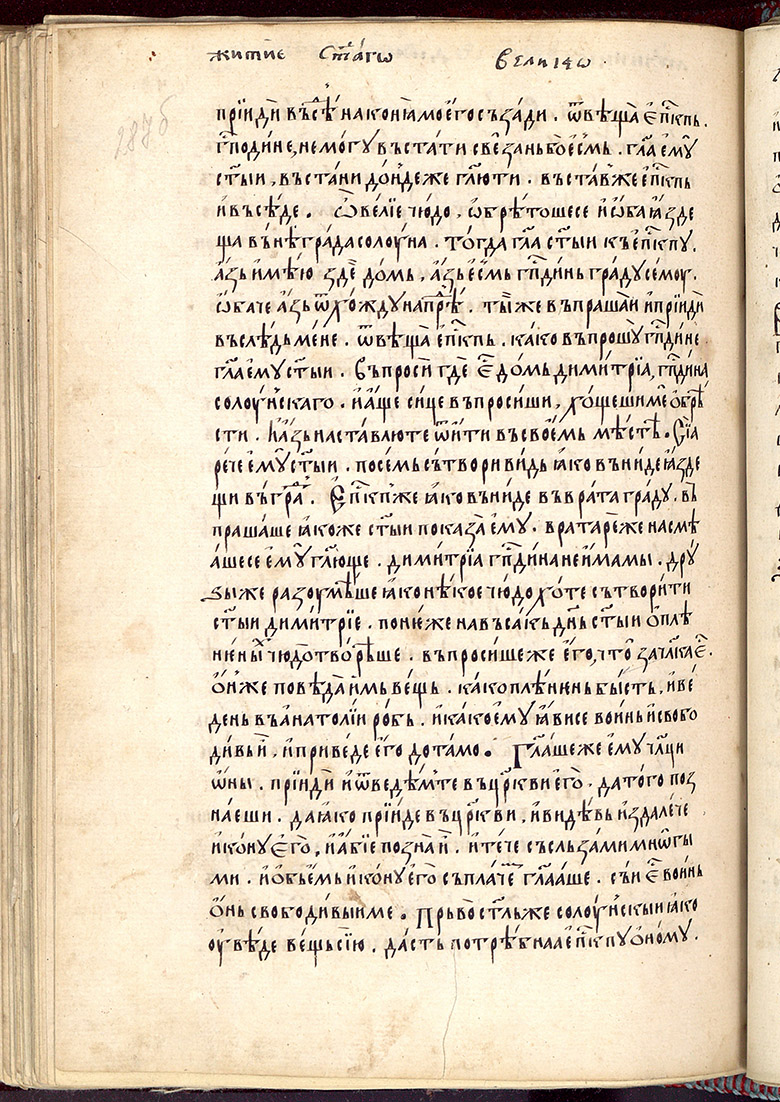 житїе ст҃аго велико
287б
прїиди въсѣ на конꙗ моего съзади. ѿвѣща еп҃кпь.
гп҃одине, не могу въстати свезань бо есмь. гл҃а ему
ст҃ыи, въстани дондеже гл҃ю ти. въстав же еп҃кпь
и въсѣде. ѽ велїе чюдо, ѡбрѣтошесе и ѡба ꙗзде
ща вънѣ града солꙋна. тогда гл҃а ст҃ыи къ еп҃кпу.
азь имѣю зде домь, азь есмь гп҃динь граду семоу.
ѡбаче азь ѿхожду напрѣ. ты же въпрашаи и прїиди
въслѣдь мене. ѿвѣща еп҃кпь. како въпрошу гп҃дине
гл҃а ему ст҃ыи. въпроси где е҃ домь димитрїа, гп҃дина
солоунскаго. и аще сице въпросиши, хощеши ме обрѣ
сти. и азь наставлю те ѿити въ своемь мѣстѣ. Сїа
рече ему ст҃ыи. посемь сътвори видь ꙗко вьниде ꙗзде
щи въ гра. Еп҃кп же ꙗко вьниде въ врата граду. въ
прашаше ꙗкоже ст҃ыи показа ему. вратаре же насмѣ
ашесе ему гл҃юще. димитрїа гп҃дина не имамы. дру
ѕы же разоумѣше ꙗко нѣкое чюдо хоте сътворити
ст҃ыи димитрїе. понеже на въсакь дн҃ь ст҃ыи о плѣ
нены чюдотворѣше. въпросише же его, что за чл҃ка е҃.
он же поведа имь вещь. како плѣнень бысть, и ве
день въ анатолїи робь. и како ему ꙗви се воинь и свобо
дивь и, и приведе его до тамо. Гл҃аше же ему чл҃ци
ѡны. прїиди и ѿведемте въ цр҃кви его. да того поз
наеши. да ꙗко прїиде въ цр҃кви, и видѣвь издалече
икону его, и абїе позна и. и тече съ сльзами мнѡгы
ми. и обьемь икону его съ плаче гл҃ааше. съи е҃ воинь
онь свободивыи ме. Прьвост҃ль же солоунскыи ꙗко
оувѣде вещь сїю. дасть потрѣбнаа еп҃кпу оному.